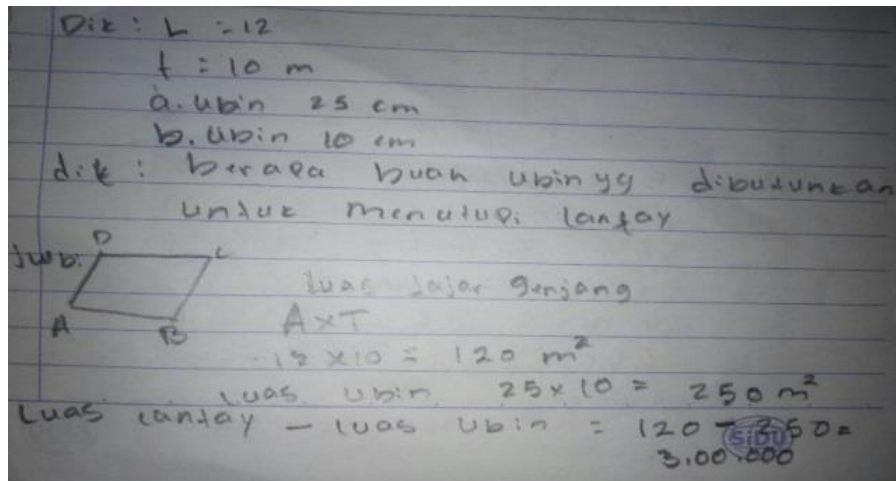 Dik : L = 12
t = 10 m
a. ubin 25 cm
b. ubin 10 cm
dik : berapa buah ubin yg dibutuhkan
untuk menutupi lantay
Jwb:
D C
A B
luas jajar genjang
A x T
12 x 10 = 120 m²
Luas ubin 25 x 10 = 250 m²
Luas lantay - luas ubin = 120 - 250 =
3.00.000
SiDU